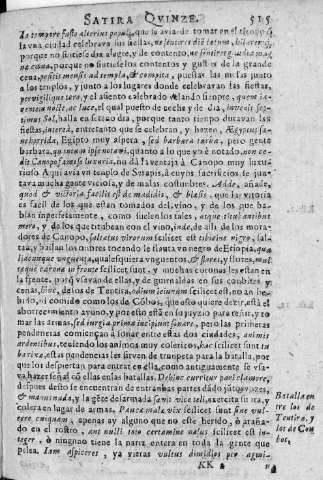 SATIRA QVINZE. 515
la tempore festo alterius populi, que la avia de tomar en el tiempo q
la una ciudad celebrava sus fiestas, ne lætum
porque no tuviesse dia alegre, y de contento, ne
cena, porque no tuviessen los contentos y gustos de la grande
cena, positis mensis ad templa, & compita, puestas las mesas junto
a los templos, y junto a los lugares donde celebravan las fiestas,
pervigilique toro, y el assiento celebrado velando siempre, quem ia-
centem nocte ac luce, el qual puesto de noche y de dia, invenit sep-
timus Sol, halla el seteno dia, porque tanto tiempo duravan las
fiestas, entretanto que se celebran, y hazen, Ægyptus sa-
ne horrida, Egipto muy aspera, sed barbara turba, pero gente
barbara, quantum ipse notavi, quanto a lo que yo è notado, non ce-
dit Canopo famoso luxuria, no dà la ventaja à Canopo muy luxu-
rioso. Aqui avia un templo de Serapis, à cuyos sacrificios se jun-
tava mucha gente viciosa, y de malas costumbres. Adde, añade,
quod & victoria facilis est de madidis, & blæsis, que la vitoria
es facil de los que estan tomados del vino, y de los que ha-
blan imperfetamente, como suelen los tales, atque titubantibus
mero, y de los que titubean con el vino, inde, de alli de los mora-
dores de Canopo, saltatus virorum scilicet est tibicine nigro, sal-
tar, y bailan los ombres tocando le flauta un negro de Etiopia, qua-
liacunque unguenta, qualesquiera unguentos, & flores, y flores, mul-
taque coronæ in fronte scilicet sunt, y muchas coronas les estan en
la frente, porq usavan de ellas, y de guirnaldas en sus combites y
cenas, hinc, de los de Tentira, odium ieiunum scilicet est, no an be-
bido, ni comido como los de Còbos, que esto quiere dezir, està el
aborrecimiento ayuno, y por esto està en su juyzio para reñir, y to
mar las armas, sed iurgia prima incipiunt sonare, pero las primeras
pendencias comiençan à sonar entre estas dos ciudades, animis
ardentibus, teniendo los animos muy colericos, hæc scilicet sunt tu
ba rixæ, estas pendencias les sirven de trumpeta para la batalla, por
que los despiertan para entrar en ella, como antiguamente se usa-
va hazer señal cõ ellas en las batallas. Dehinc curritur pari clamore,
despues desto se encuentran de entrambas partes dãdo iguales vozes,
& manus nuda, y la gète desarmada sævit vice teli, exercita su ira, y
colera en lugar de armas. Paucæ malæ vix scilicet sunt sine vul-
nere, cuiquam, apenas ay alguno que no este herido, ò araña-
do en el rostro, aut nulli toto certamine nasus scilicet est in-
teger, ò ninguno tiene la nariz entera en toda la gente que
pelea. Iam aspiceres, ya vieras vultus dimidios per agmi-
Batalla en
tre los de
Tentira, y
los de Com
bos.
KK 2